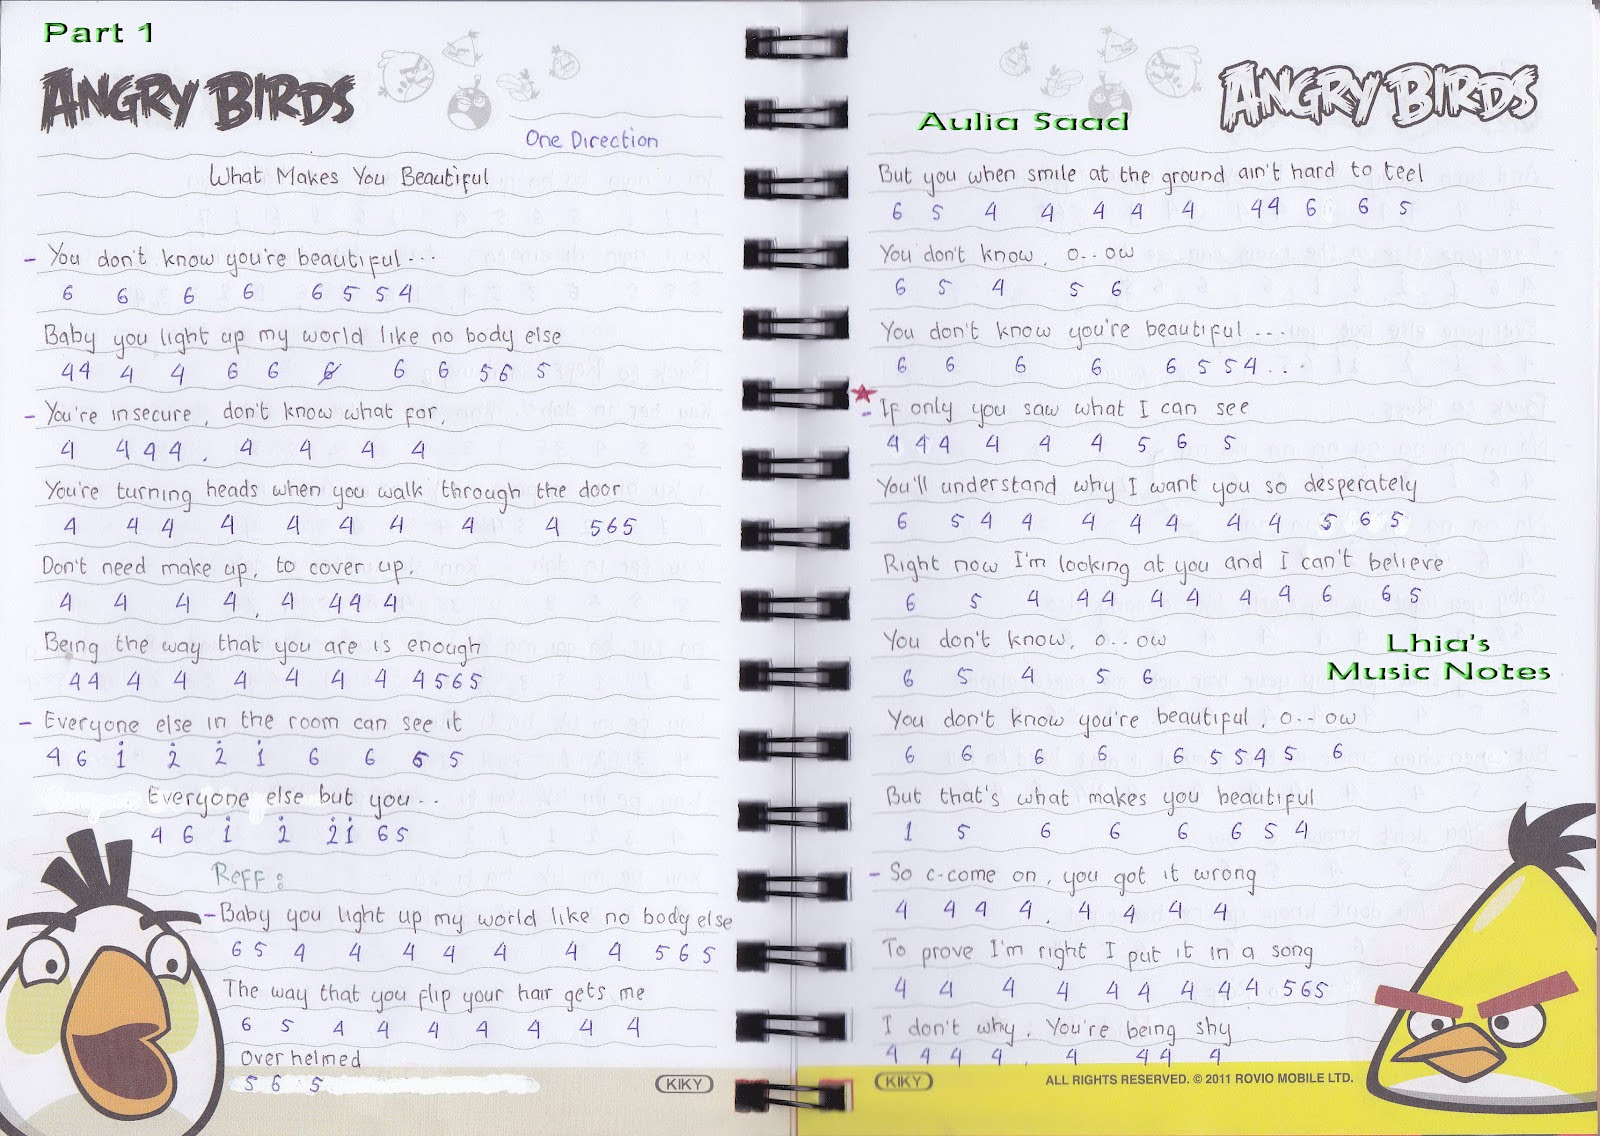 Part 1
ANGRY BIRDS
One Direction
What Makes You Beautiful
- You don't know you're beautiful...
6 6 6 6 6 5 5 4
Baby you light up my world like no body else
44 4 4 6 6 6 6 6 56 5
- You're insecure, don't know what for,
4 4 4 4 , 4 4 4 4
You're turning heads when you walk through the door
4 4 4 4 4 4 4 4 4 565
Don't need make up, to cover up,
4 4 4 4 , 4 44 4
Being the way that you are is enough
44 4 4 4 4 4 4 4565
- Everyone else in the room can see it
4 6 1̇ 2̇ 2̇ 1̇ 6 6 5 5
Everyone else but you..
4 6 1̇ 2̇ 2̇1̇ 65
Reff :
- Baby you light up my world like no body else
6 5 4 4 4 4 4 4 4 5 6 5
The way that you flip your hair gets me
6 5 4 4 4 4 4 4 4
Over helmed
5 6 5
KIKY
Aulia Saad
ANGRY BIRDS
But you when smile at the ground ain't hard to teel
6 5 4 4 4 4 4 44 6 6 5
You don't know, o...ow
6 5 4 5 6
You don't know you're beautiful...
6 6 6 6 6 5 5 4...
- If only you saw what I can see
4 4 4 4 4 4 5 6 5
You'll understand why I want you so desperately
6 5 4 4 4 4 4 4 4 5 6 5
Right now I'm looking at you and I can't believe
6 5 4 4 4 4 4 4 4 6 6 5
You don't know, o...ow
6 5 4 5 6
Lhia's
Music Notes
You don't know you're beautiful, o...ow
6 6 6 6 6 5 5 4 5 6
But that's what makes you beautiful
1 5 6 6 6 6 5 4
- So c-come on, you got it wrong
4 4 4 4 , 4 4 4 4
To prove I'm right I put it in a song
4 4 4 4 4 4 4 4 4 565
I don't why, You're being shy
4 4 4 4 , 4 4 4 4
KIKY
ALL RIGHTS RESERVED. © 2011 ROVIO MOBILE LTD.